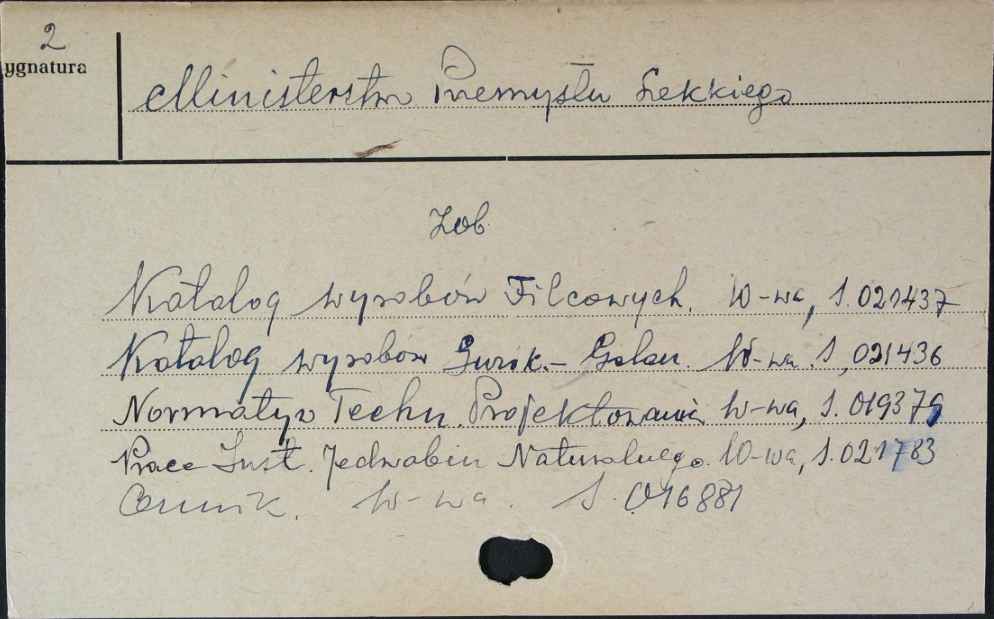 2
ygnatura
Ministerstwo Przemysłu Lekkiego
Zob.
Katalog wyrobów Filcowych. W-wa, S. 021437
Katalog wyrobów Guzik.- Galan. W-wa. S. 021436
Normatyw Techn. Projektowania W-wa, S. 019379
Prace Inst. Jedwabiu Naturalnego. W-wa, S. 021783
Cennik. W-wa. S. 016881